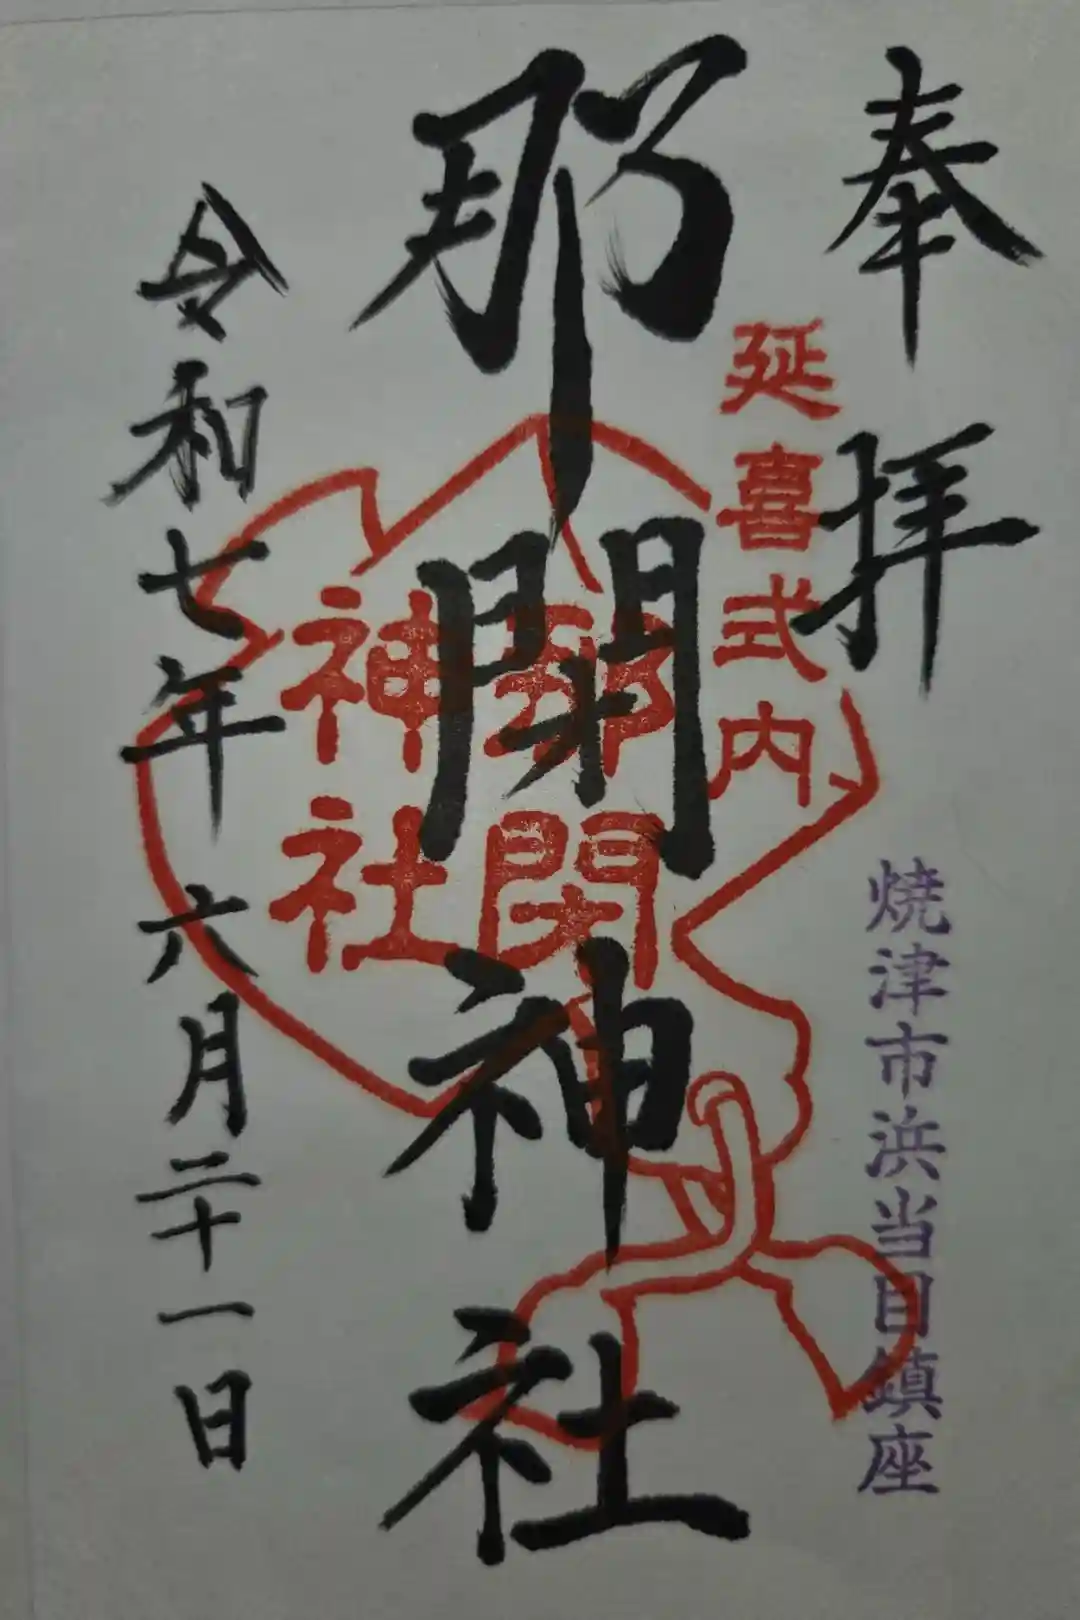 奉拝
焼津市浜当目鎮座
延喜式内
那閇神社
那閇
神社
令和七年六月二十一日